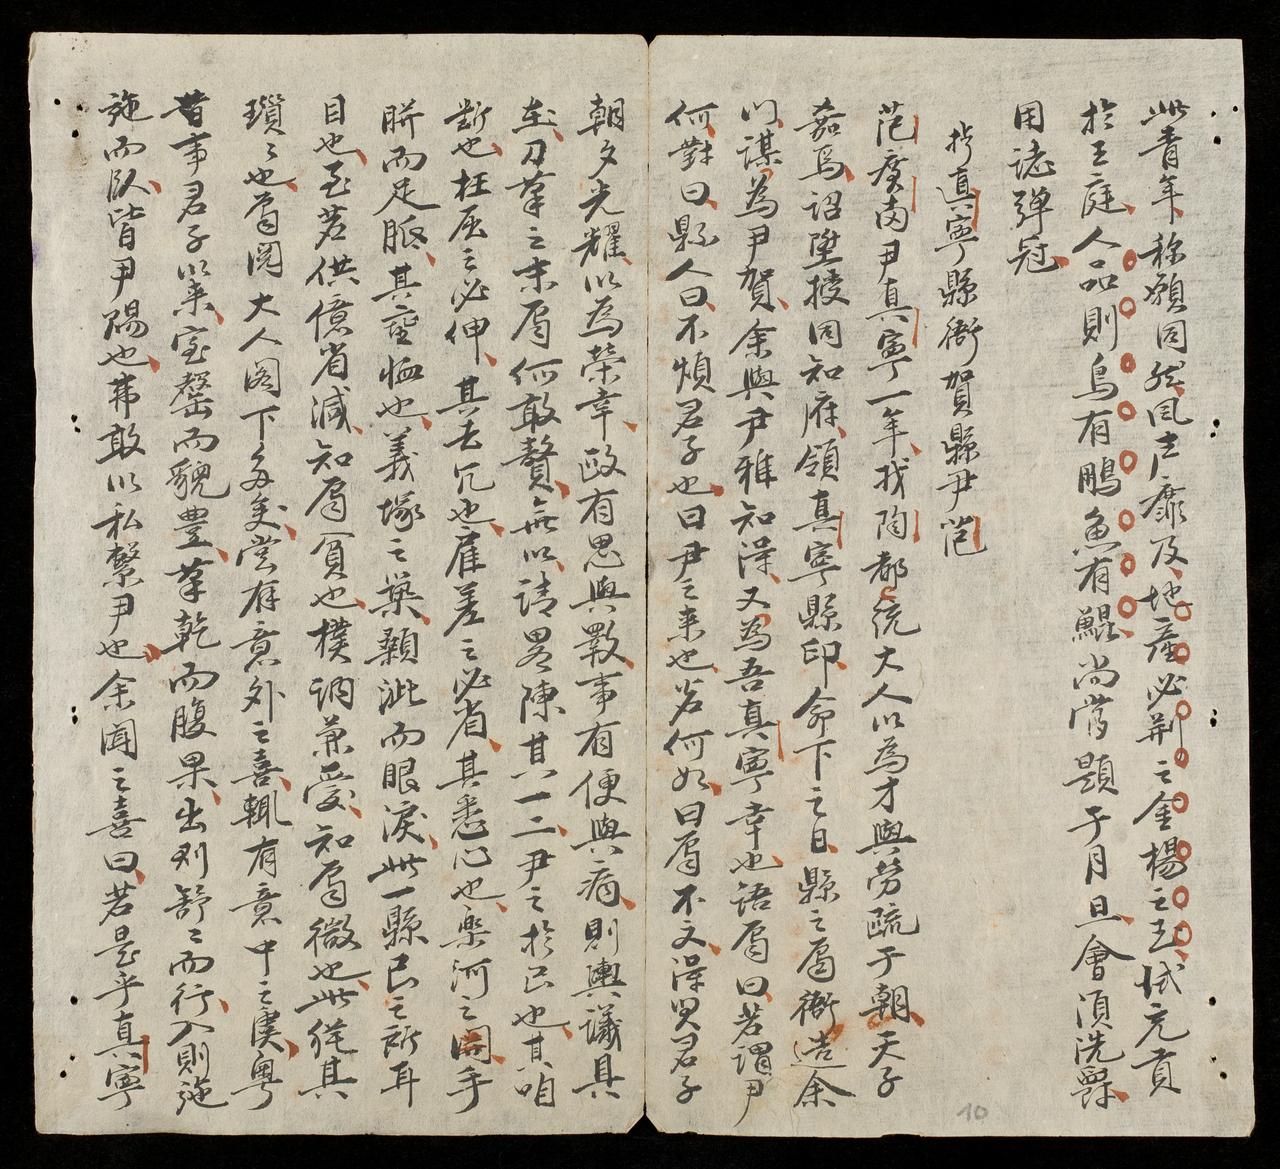 此青年称願固然風声靡及地產必荆之金楊之玉式充貢
扵王庭人品則鳥有鵬魚有鯤尚當題于月旦會湏洗觧
用誌彈冠
扵真寧縣衙賀縣尹范
范度南尹真寧一年我陶都統大人以為才與勞疏于朝天子
嘉焉詔陞授同知府領真寧縣印命下之日縣之屬衙造余
门謀為尹賀余與尹雅知深又為吾真寧幸也語屬曰若謂尹
何對曰縣人曰不煩君子也曰尹之来也若何如曰屬不文深哭君子
朝夕光耀以為榮幸政有思與斁事有便與病則輿議具
在刀筆之末屬何敢贅無以請畧陳其一二尹之扵民也其咱
斷也枉屈之必伸其去冗也雇差之必省其悉心也樂河之開手
胼而足胝其𦊅恤也義塚之築顙泚而眼淚此一縣民之所耳
目也至若供億省減知屬貧也樸訥兼愛知屬微也此從其
瓚〻也屬閱大人阁下多矣嘗有意外之喜輒有意中之虞粤
昔事君子以来室罄而貌豊筆乾而腹果出則舒〻而行入則施
施而臥皆尹賜也弗敢以私繫尹也余闻之喜曰若是乎真寧